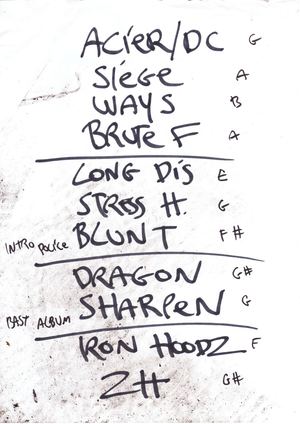 ACIER/DC G
SIÉGE A
WAYS B
BRUTE F A
LONG DIS E
STRESS H. G
INTRO POLICE BLUNT F#
DRAGON G#
BAST ALBUM SHARPEN G
IRON HOODZ F
ZH G#